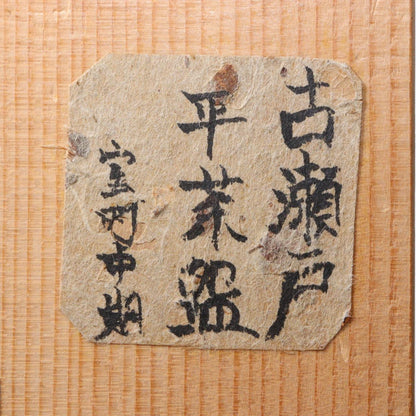 古瀬戸
平茶盌
室町中期